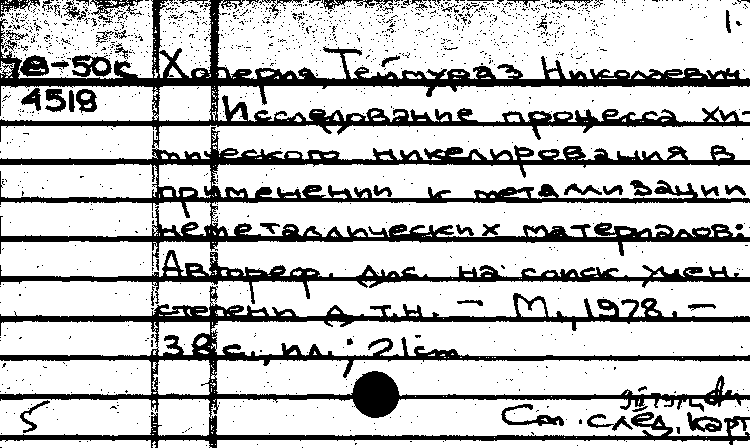 1.
78-50к Хоперия, Теймураз Николаевич.
4518 Исследование процесса хи-
мического никелирования в
применении к метализации
неметаллических материалов:
Автореф. дис. на соиск. учен.
степени д.т.н. - М., 1978. -
38 с., ил.; 21 см
5 См. след. карт